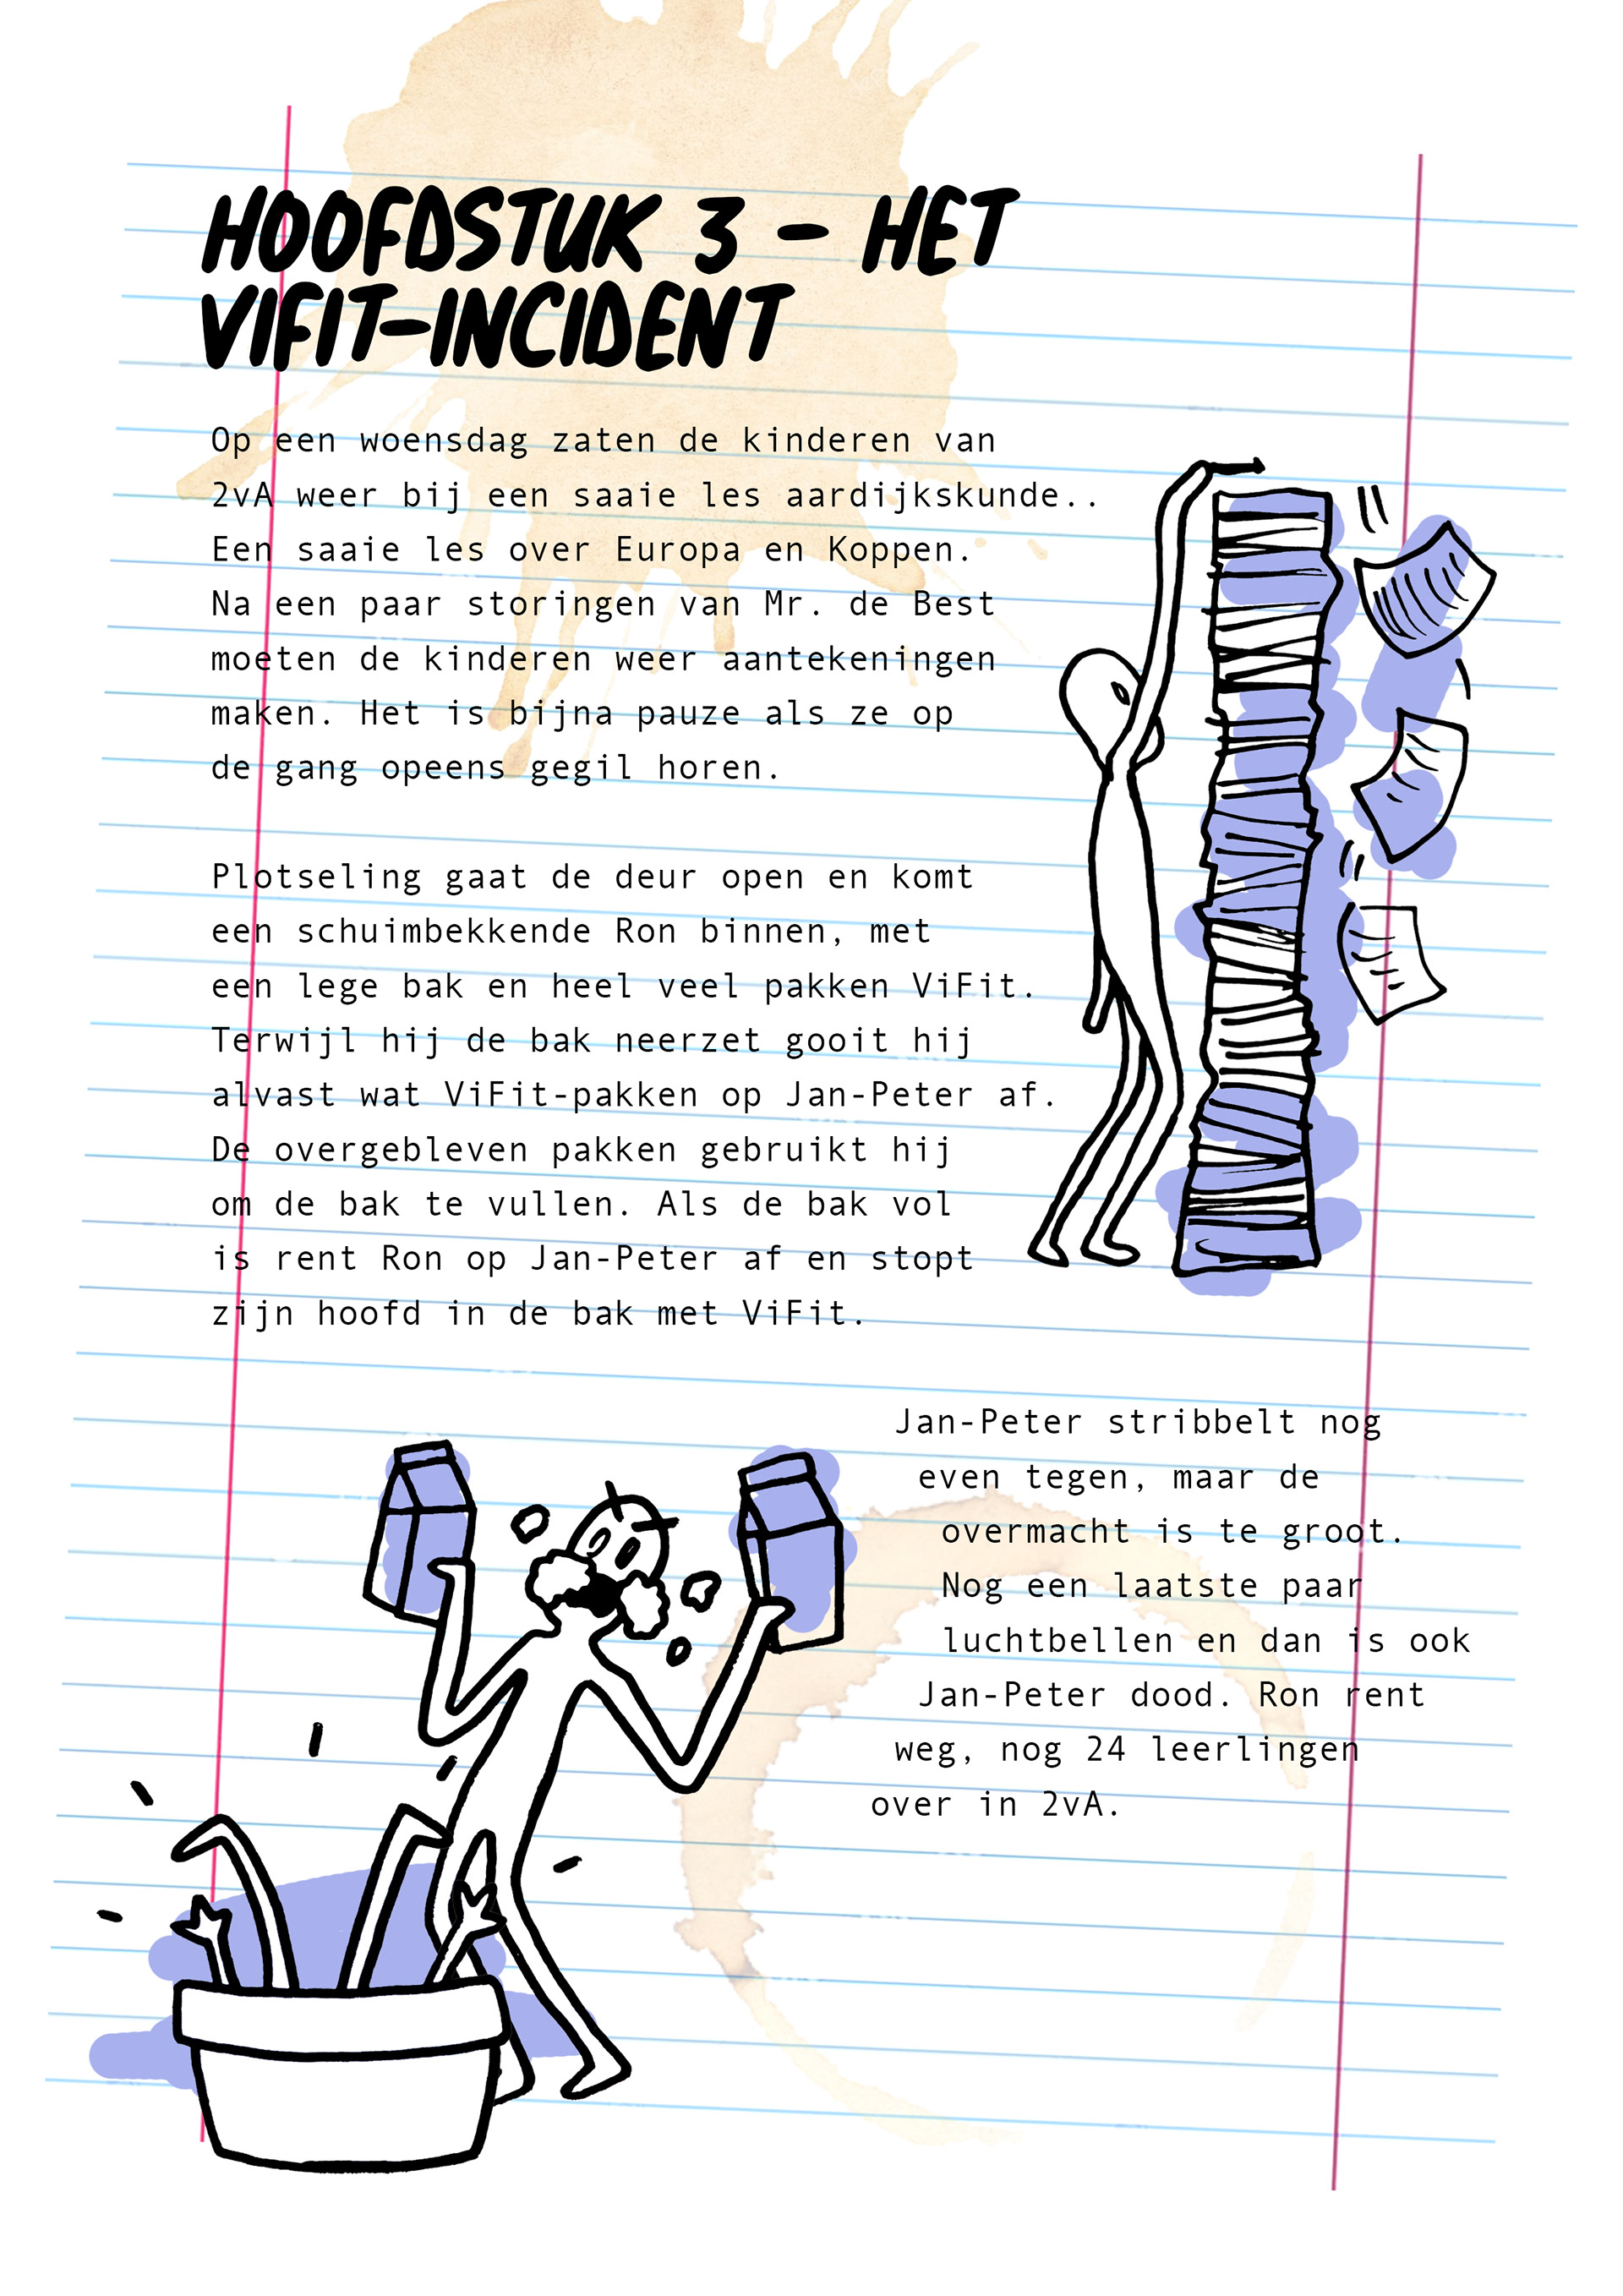 HOOFDSTUK 3 - HET
VIFIT-INCIDENT
Op een woensdag zaten de kinderen van
2vA weer bij een saaie les aardijkskunde..
Een saaie les over Europa en Koppen.
Na een paar storingen van Mr. de Best
moeten de kinderen weer aantekeningen
maken. Het is bijna pauze als ze op
de gang opeens gegil horen.
Plotseling gaat de deur open en komt
een schuimbekkende Ron binnen, met
een lege bak en heel veel pakken ViFit.
Terwijl hij de bak neerzet gooit hij
alvast wat ViFit-pakken op Jan-Peter af.
De overgebleven pakken gebruikt hij
om de bak te vullen. Als de bak vol
is rent Ron op Jan-Peter af en stopt
zijn hoofd in de bak met ViFit.
Jan-Peter stribbelt nog
even tegen, maar de
overmacht is te groot.
Nog een laatste paar
luchtbellen en dan is ook
Jan-Peter dood. Ron rent
weg, nog 24 leerlingen
over in 2vA.